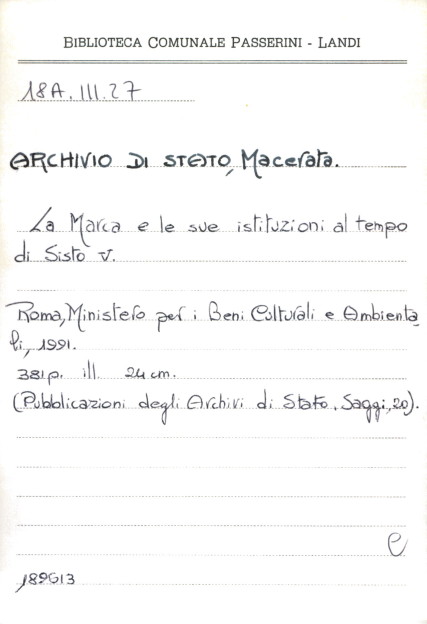 BIBLIOTECA COMUNALE PASSERINI - LANDI
18A.III.27
ARCHIVIO DI STATO, Macerata.
La Marca e le sue istituzioni al tempo
di Sisto V.
Roma, Ministero per i Beni Culturali e Ambienta
li, 1991.
381p. ill. 24 cm.
(Pubblicazioni degli Archivi di Stato. Saggi, 20).
e
189613